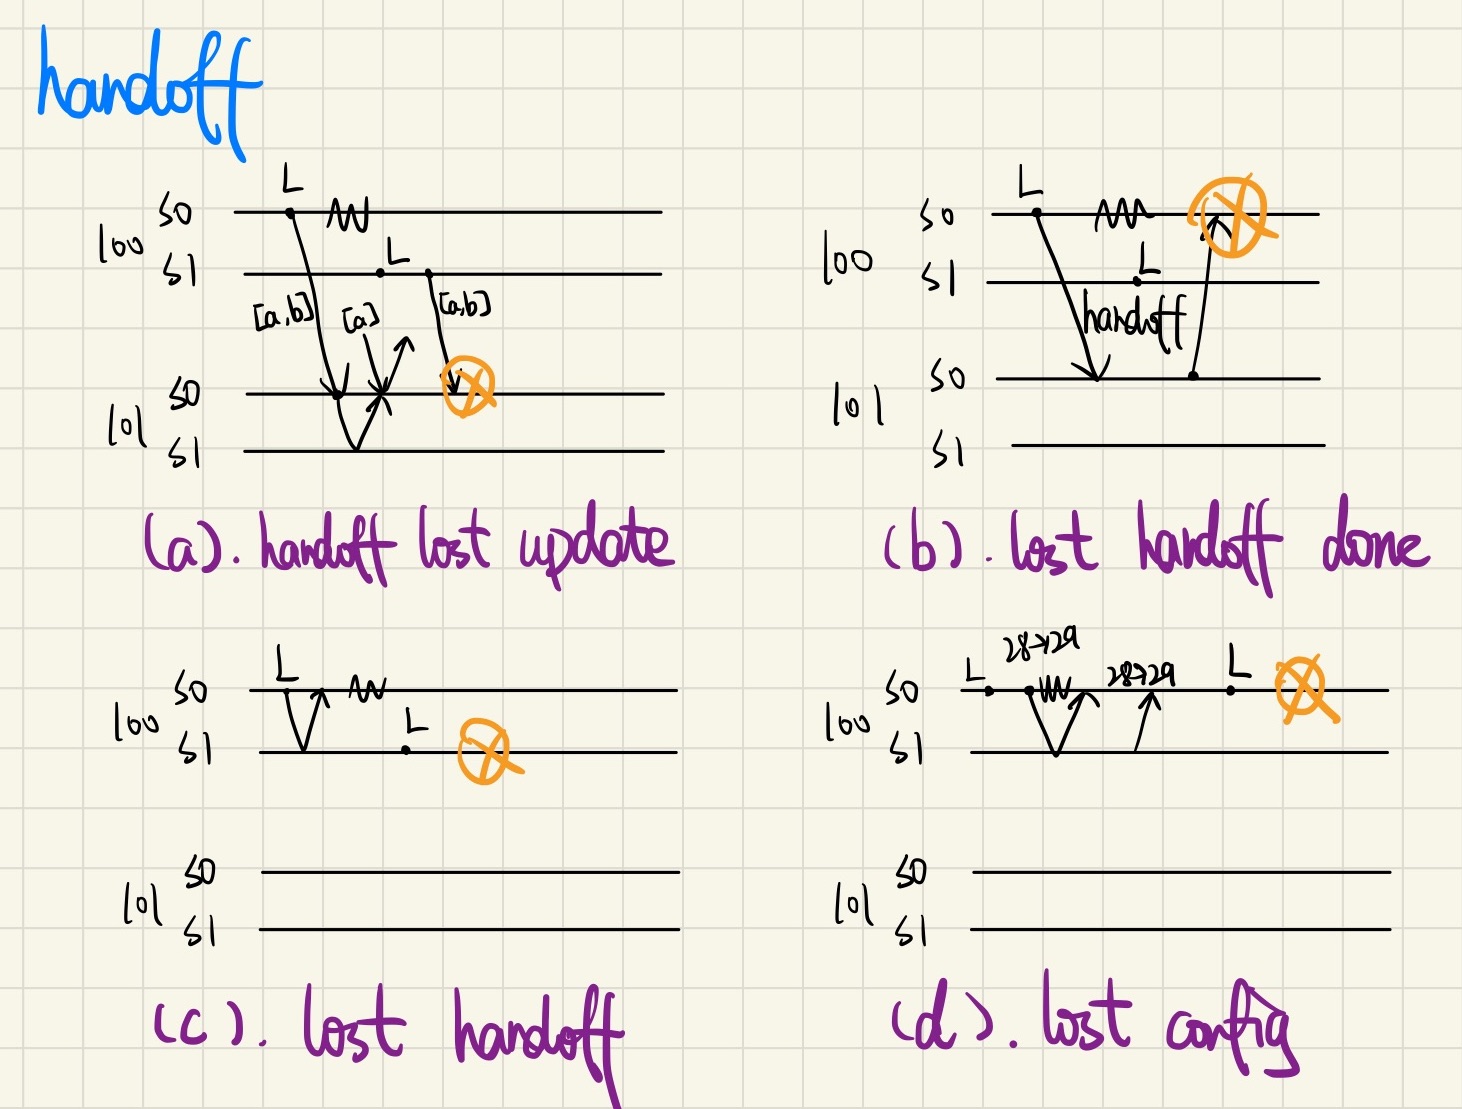 handoff
L
S0
100
L
S1
[a,b] [a] [a,b]
S0
101
S1
(a). handoff lost update
L
S0
100
L
S1
handoff
S0
101
S1
(b). lost handoff done
L
S0
100
L
S1
S0
101
S1
(c). lost handoff
L 28→29 28→29 L
S0
100
S1
S0
101
S1
(d). lost config